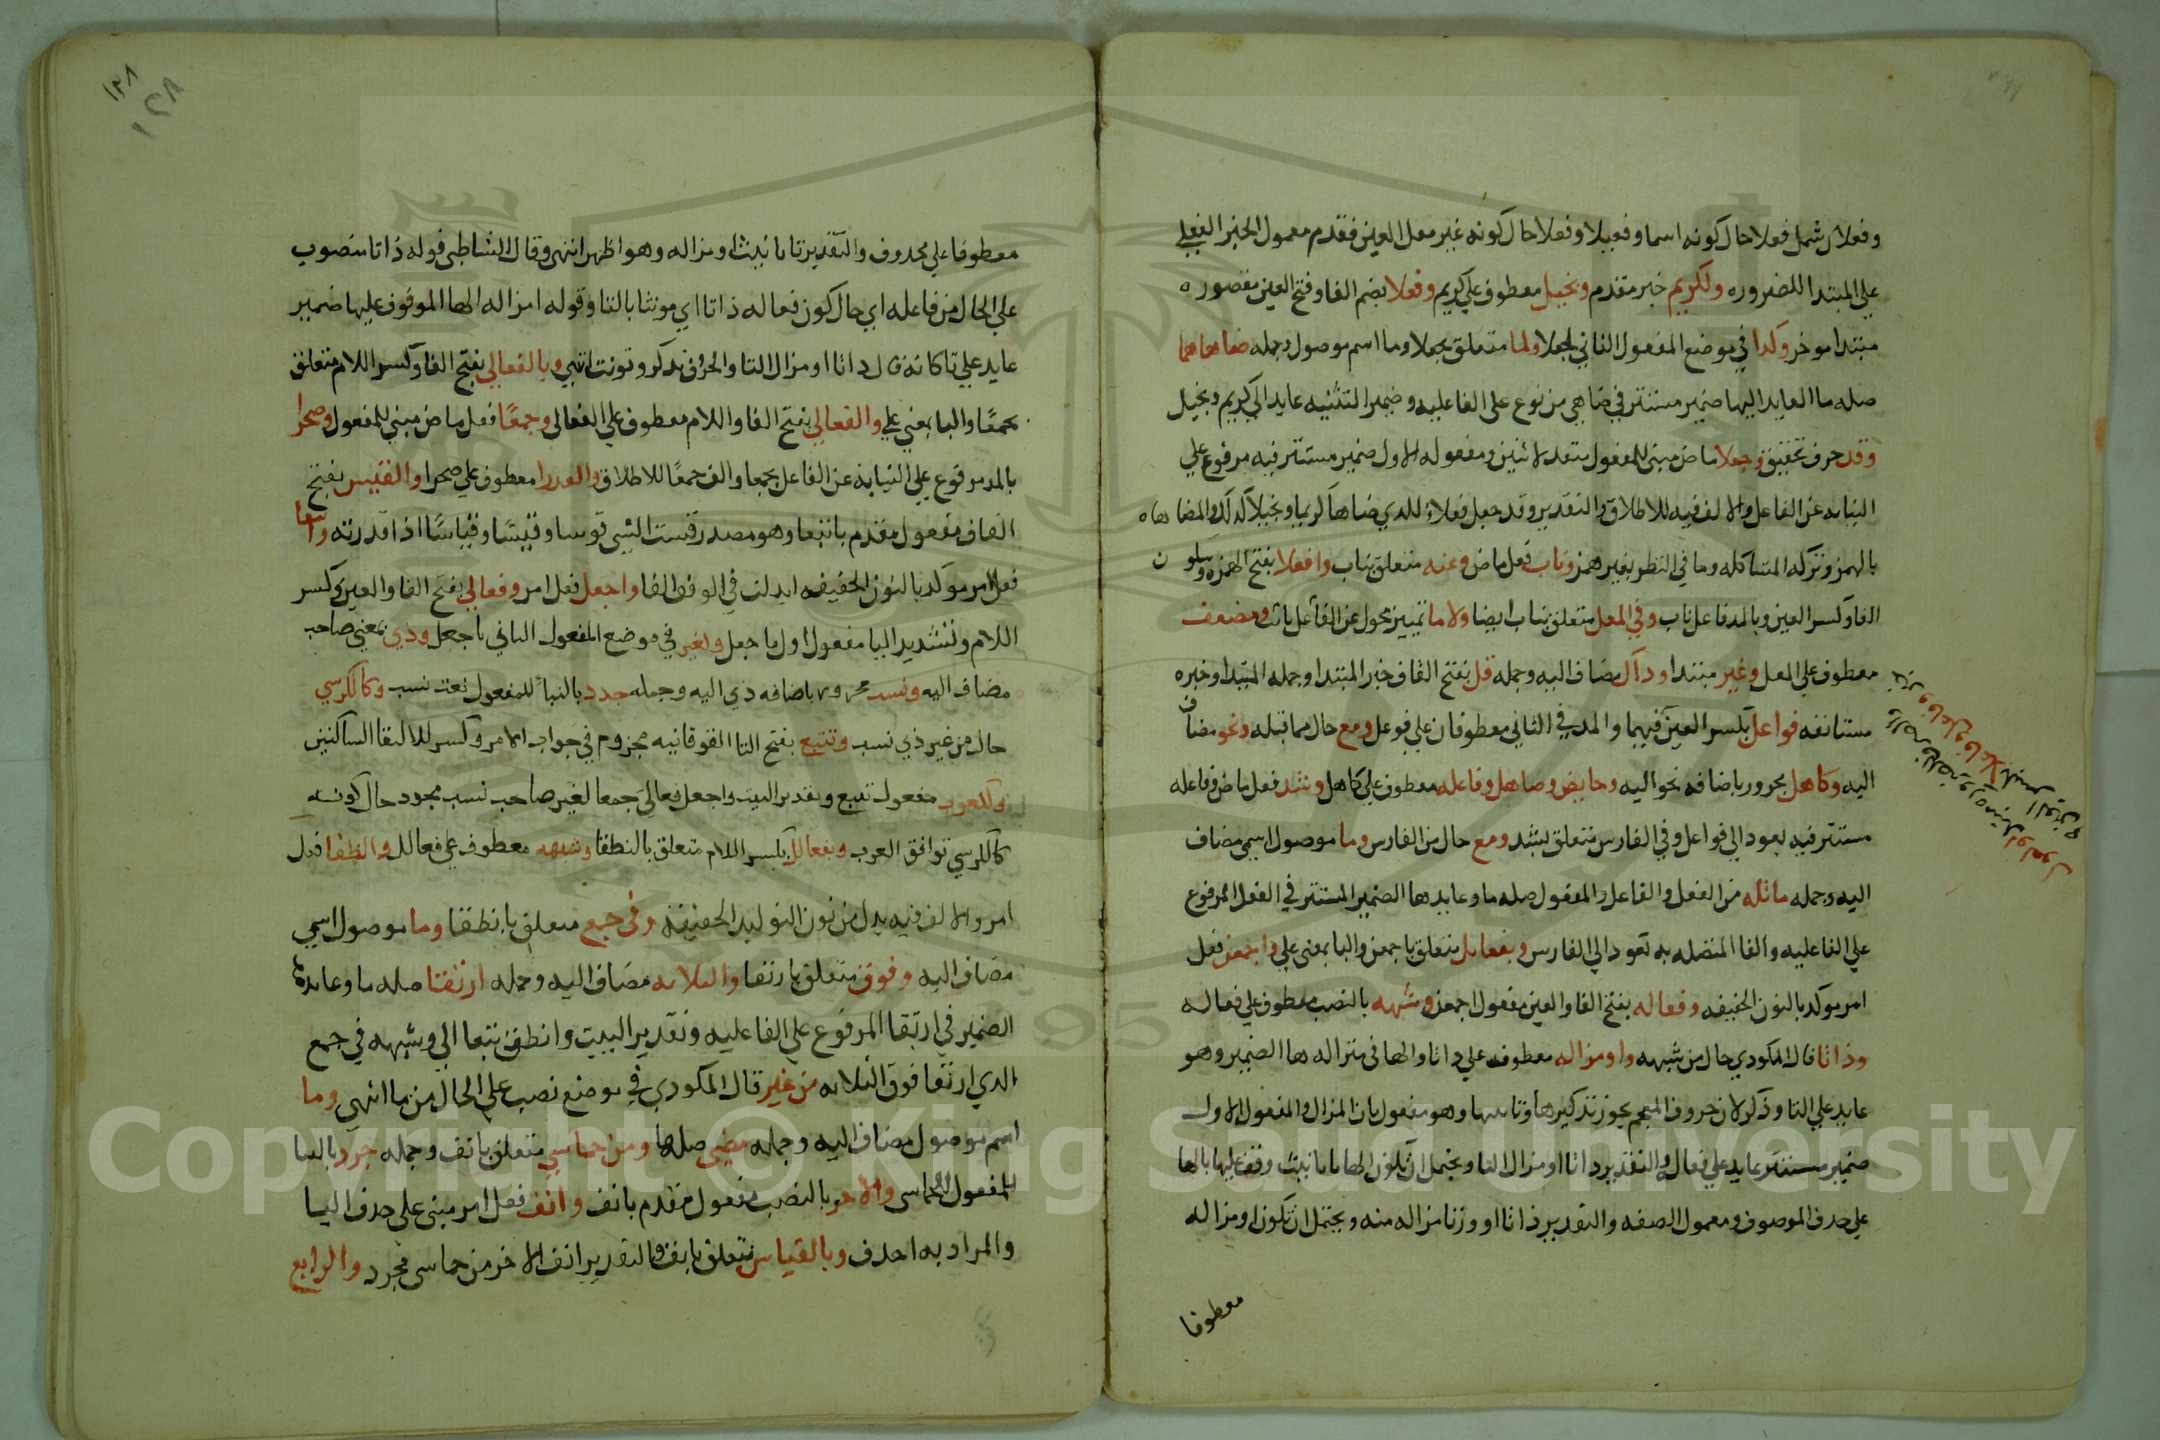 وفعلان شمل فعلا حال كونه اسما وفعيلا وفعلا حال كونه غير معل العين فقدم معمول الخبر الفعلي
علي المبتدا للضروره ولكريم خبر مقدم وبخيل معطوف علي كريم وفعلا بضم الفا وفتح العين مقصوره
مبتدا موخر وكذا في موضع المفعول الثاني لجعلا ولما متعلق بجعلا وما اسم موصول وجمله ضاهاهما
صله ما العايد اليها ضمير مستتر في ضاهي مرفوع علي الفاعليه وضمير التثنيه عايد الي كريم وبخيل
وقد حرف تحقيق وجعلا ماض مبني للمفعول متعد لاثنين ومفعوله الاول ضمير مستتر فيه مرفوع علي
النيابه عن الفاعل والالف فيه للاطلاق والتقدير وقد جعل فعلاء للذي ضاها كريما وبخيلا كذلك والمضاهاه
بالهمز وتركه المشاكله وما في النظر بغير همز وناب فعل ماض وعنه متعلق بناب وافعلا بفتح الهمزه وسكون
الفا وكسر العين وبالمد فاعل ناب وفي المعل متعلق بناب ايضا ولاما تمييز محول عن الفاعل بات ومضعف
معطوف علي المعل وغير مبتدا وذاك مضاف اليه وجمله قل بفتح القاف خبر المبتدا وجمله المبتدا وخبره
مستانفه فواعل بكسر العين فيهما والمد في الثاني معطوفان علي فوعل ومع حال مما قبله ونحو مضاف
اليه وكاهل مجرور باضافه نحو اليه وحايض وصاهل وفاعله معطوف علي كاهل وشذ فعل ماض وفاعله
مستتر فيه يعود الي فواعل وفي الفارس متعلق بشذ ومع حال من الفارس وما موصول اسمي مضاف
اليه وجمله ماثله من الفعل والفاعل والمفعول صله ما وعايدها الضمير المستتر في الفعل المرفوع
علي الفاعليه والفا المتصله به تعود الي الفارس وبفعايل متعلق باجمعن والبا بمعني علي واجمعن فعل
امر موكد بالنون الخفيفه وفعاله بفتح الفا والعين مفعول اجمعن وشبهه بالنصب معطوف علي فعاله
وذاتا قال المكودي حال من شبهه واومزاله معطوف علي ذاتا والها في مزاله ها الضمير وهو
عايد علي التا وذكر لان حروف المعجم يجوز تذكيرها وتانيثها وهو مفعول ثان لمزال والمفعول الاول
ضمير مستتر عايد علي فعال والتقدير ذاتا او مزال التا ويحتمل ان تكون الها تا تانيث وقف عليها بالها
علي حذف الموصوف ومعمول الصفه والتقدير ذاتا او وزنا مزاله منه ويحتمل ان تكون اومزاله
معطوفا
معطوفا علي محذوف والتقدير تا تانيث او مزاله وهو اظهر انتهي وقال الشاطبي قوله ذاتا منصوب
علي الحال من فاعله اي حال كون فعاله ذاتا اي مونثا بالتا وقوله امزاله الها الموقوف عليها ضمير
عايد علي تا كانه قال ذاتا او مزال التا والحروف تذكر وتونث انتهي وبالفعالي بفتح الفا وكسر اللام متعلق
بجمعا والبا بمعني علي والفعالي بفتح الفا واللام معطوف علي الفعالي وجمعا فعل ماض مبني للمفعول وصحرا
بالمد مرفوع علي النيابه عن الفاعل بجمعا والف جمعا للاطلاق والعذرا معطوف علي صحرا والقيس بفتح
القاف مفعول مقدم باتبعا وهو مصدر قست الشي قوسا وقيسا وقياسا اذا قدرته واتبعا
فعل امر موكد بالنون الخفيفه ابدلت في الوقف الفا واجعل فعل امر وفعالي بفتح الفا والعين وكسر
اللام وتشديد اليا مفعول اول باجعل ولغير في موضع المفعول الثاني باجعل وذي بمعني صاحب
مضاف اليه ونسب مجرور باضافه ذي اليه وجمله جدد بالبنا للمفعول نعت نسب وكالكرسي
حال من غير ذي نسب وتتبع بفتح التا الفوقانيه مجزوم في جواب الامر وكسر للالتقا الساكنين
والعرب مفعول تتبع وتقدير البيت واجعل فعالي جمعا لغير صاحب نسب مجدد حال كونه
كالكرسي توافق العرب وبفعالل بكسر اللام متعلق بانطقا وشبهه معطوف علي فعالل وانطقا فعل
امر والالف فيه بدل من نون التوكيد الخفيفه وفي جمع متعلق بانطقا وما موصول اسمي
مضاف اليه وفوق متعلق بارتقا والثلاثه مضاف اليه وجمله ارتقتا صله ما وعايدها
الضمير في ارتقا المرفوع علي الفاعليه وتقدير البيت وانطقن بفعالل وشبهه في جمع
الذي ارتقا فوق الثلاثه من غير قال المكودي في موضع نصب علي الحال من ما انتهي وما
اسم موصول مضاف اليه وجمله مضي صلها ومن خماسي متعلق بانف وجمله جرد بالبنا
للمفعول خماسي والاخر بالنصب مفعول مقدم بانف وانف فعل امر مبني علي حذف اليا
والمراد به احذف وبالقياس متعلق بانف والتقدير انف الاخر من خماسي مجرد والرابع